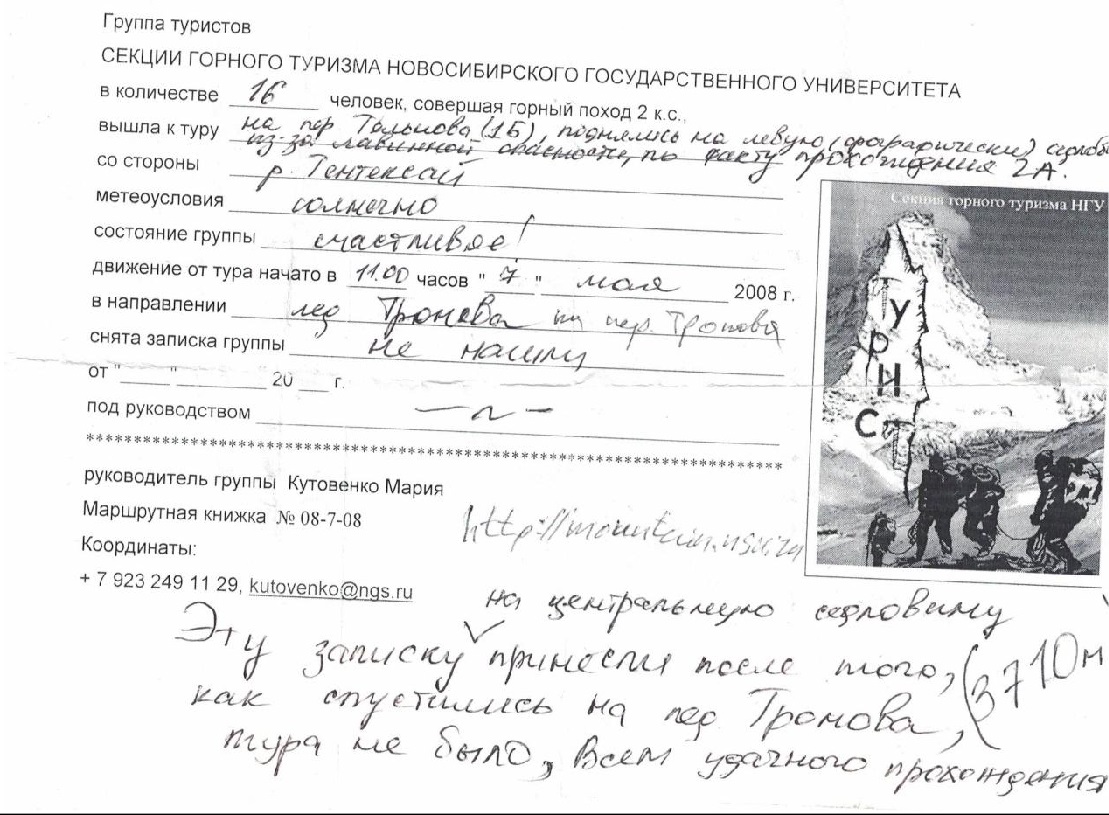 Группа туристов
СЕКЦИИ ГОРНОГО ТУРИЗМА НОВОСИБИРСКОГО ГОСУДАРСТВЕННОГО УНИВЕРСИТЕТА
в количестве 16 человек, совершая горный поход 2 к.с.,
вышла к туру на пер (1Б), поднялись на левую (орографически)
из-за лавинной опасности, по факту прохождения 2А.
со стороны р. Тентексай
метеоусловия солнечно
состояние группы счастливое!
движение от тура начато в 11.00 часов "7" мая 2008 г.
в направлении лед Тронова пер. Тронова
снята записка группы не нашли
от "____" ________ 20 ___ г.
под руководством —〃—
руководитель группы Кутовенко Мария
Маршрутная книжка № 08-7-08
Координаты:
+ 7 923 249 11 29, kutovenko@ngs.ru
Секция горного туризма НГУ
Турист
на центральную седловину
Эту записку принесли после того, (3710м
как спустились на лед Тронова,
тура не было, Всем удачного прохождения